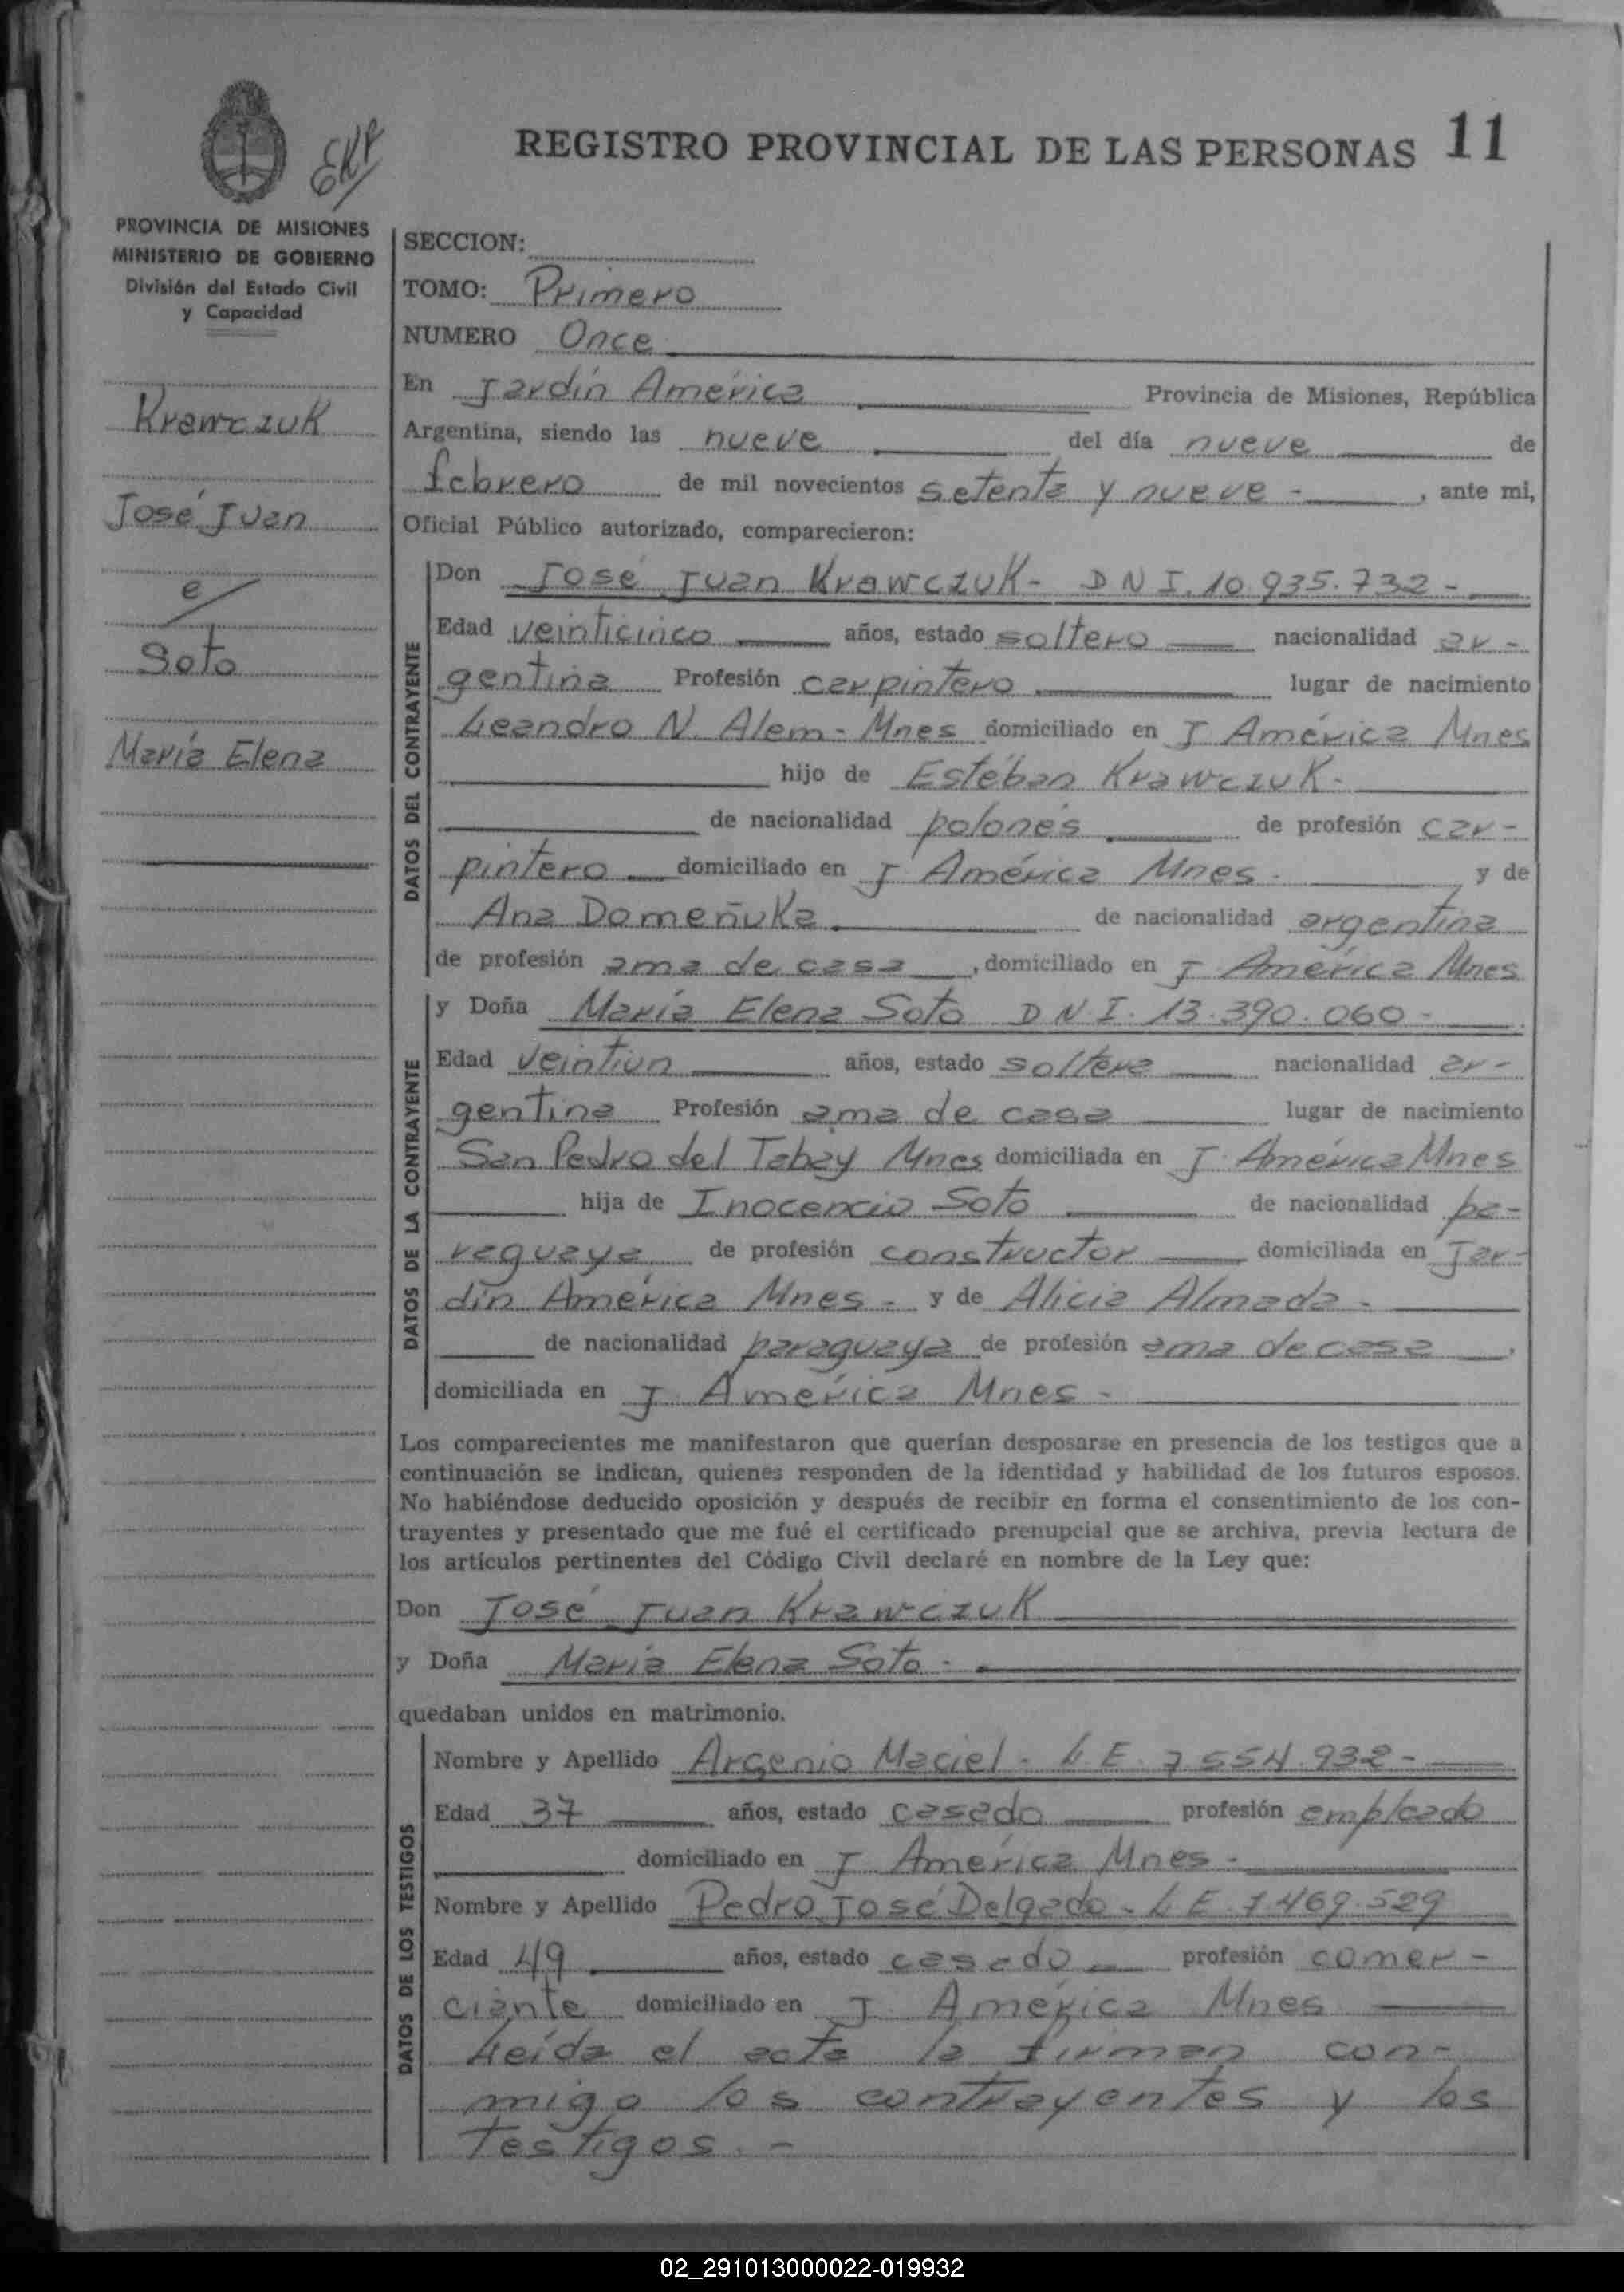 REGISTRO PROVINCIAL DE LAS PERSONAS 11
PROVINCIA DE MISIONES
MINISTERIO DE GOBIERNO
División del Estado Civil
y Capacidad
Krawczuk
José Juan
e/
Soto
María Elena
SECCION:
TOMO: Primero
NUMERO Once
En Jardín América Provincia de Misiones, República
Argentina, siendo las nueve del día nueve de
febrero de mil novecientos setenta y nueve - , ante mi,
Oficial Público autorizado, comparecieron:
DATOS DEL CONTRAYENTE
Don José Juan Krawczuk - D N I. 10.935.732 -
Edad veinticinco años, estado soltero nacionalidad ar-
gentina Profesión carpintero lugar de nacimiento
Leandro N. Alem - Mnes domiciliado en J América Mnes
hijo de Estéban Krawczuk.
de nacionalidad polonés de profesión car-
pintero domiciliado en J América Mnes. y de
Ana Domeñuka de nacionalidad argentina
de profesión ama de casa , domiciliado en J América Mnes
DATOS DE LA CONTRAYENTE
y Doña María Elena Soto D N I. 13.390.060 -
Edad veintiun años, estado soltera nacionalidad ar-
gentina Profesión ama de casa lugar de nacimiento
San Pedro del Tabay Mnes domiciliada en J. América Mnes
hija de Inocencio Soto de nacionalidad pa-
raguaya de profesión constructor domiciliada en Jar-
dín América Mnes - y de Alicia Almada -
de nacionalidad paraguaya de profesión ama de casa ,
domiciliada en J. América Mnes -
Los comparecientes me manifestaron que querían desposarse en presencia de los testigos que a
continuación se indican, quienes responden de la identidad y habilidad de los futuros esposos.
No habiéndose deducido oposición y después de recibir en forma el consentimiento de los con-
trayentes y presentado que me fué el certificado prenupcial que se archiva, previa lectura de
los artículos pertinentes del Código Civil declaré en nombre de la Ley que:
Don José Juan Krawczuk
y Doña María Elena Soto -
quedaban unidos en matrimonio.
DATOS DE LOS TESTIGOS
Nombre y Apellido Argenio Maciel - L.E. 7.554.932 -
Edad 37 años, estado casado profesión empleado
domiciliado en J América Mnes -
Nombre y Apellido Pedro José Delgado - L E 7.469.529
Edad 49 años, estado casado profesión comer-
ciante domiciliado en J. América Mnes
Leída el acta la firman con-
migo los contrayentes y los
testigos. -
02_291013000022-019932